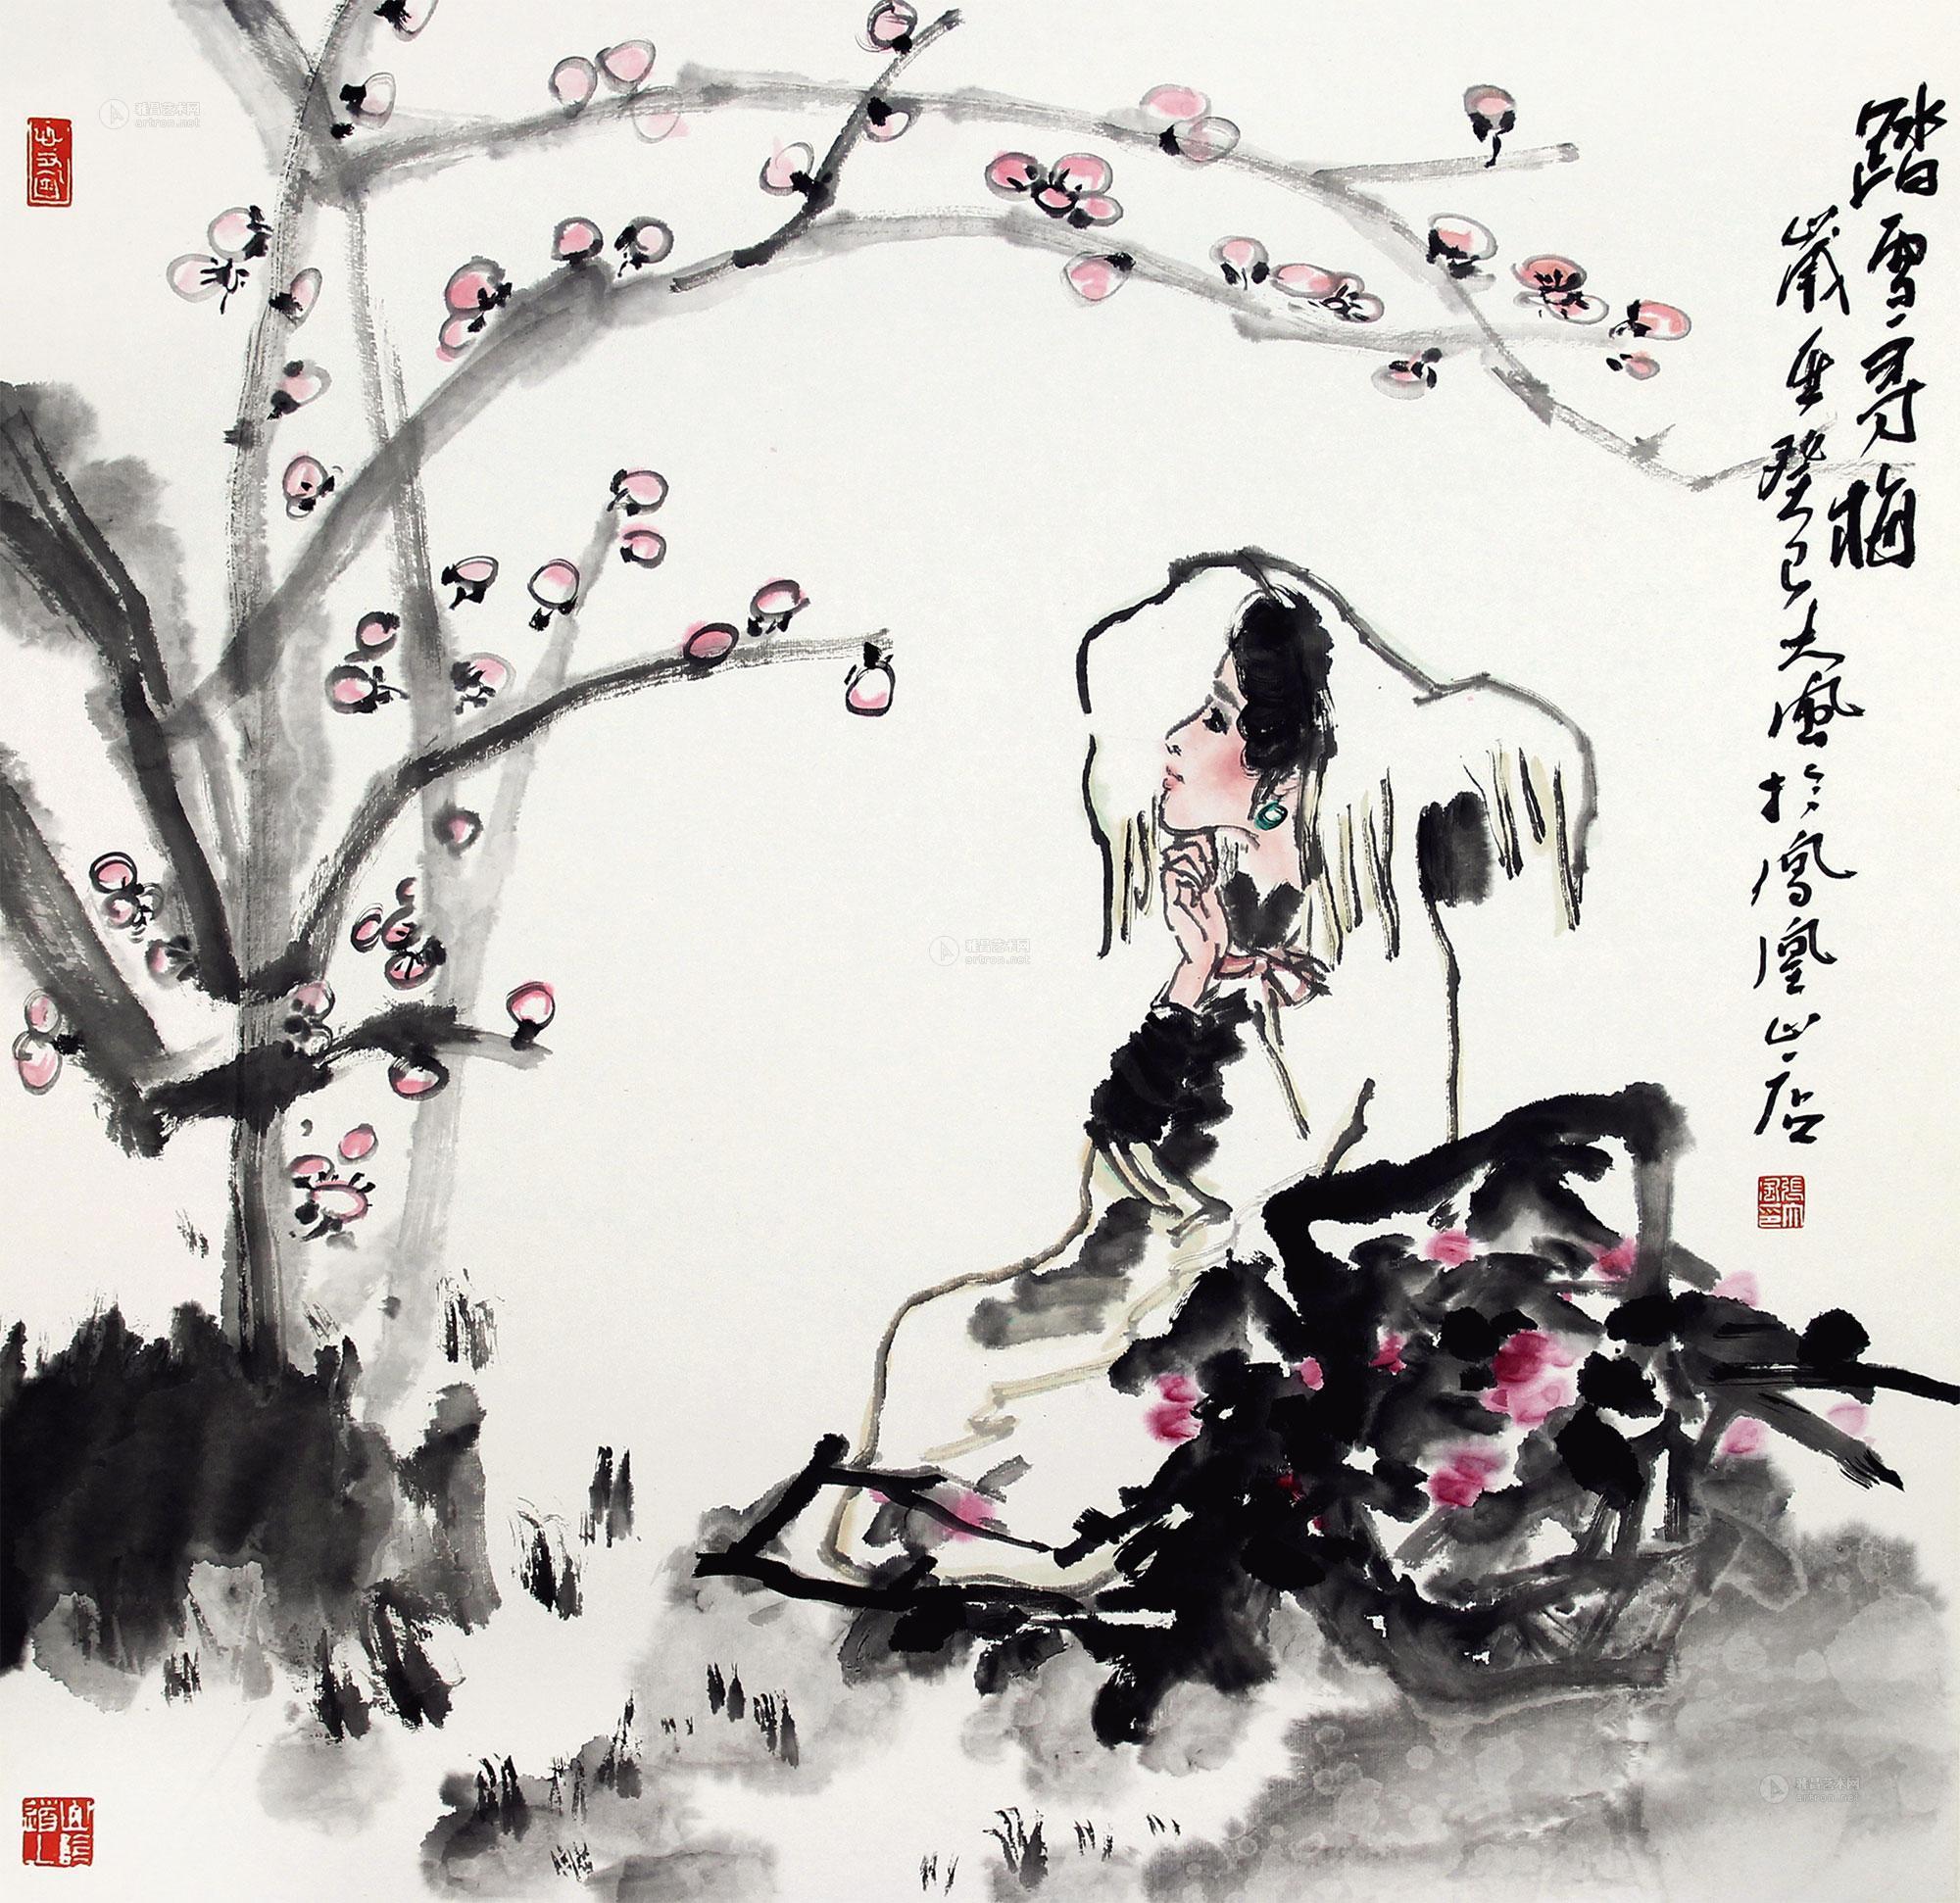 踏雪寻梅
岁在癸巳大风於凤凰山居
雅昌艺术网
artron.net
雅昌艺术网
artron.net
雅昌艺术网
artron.net